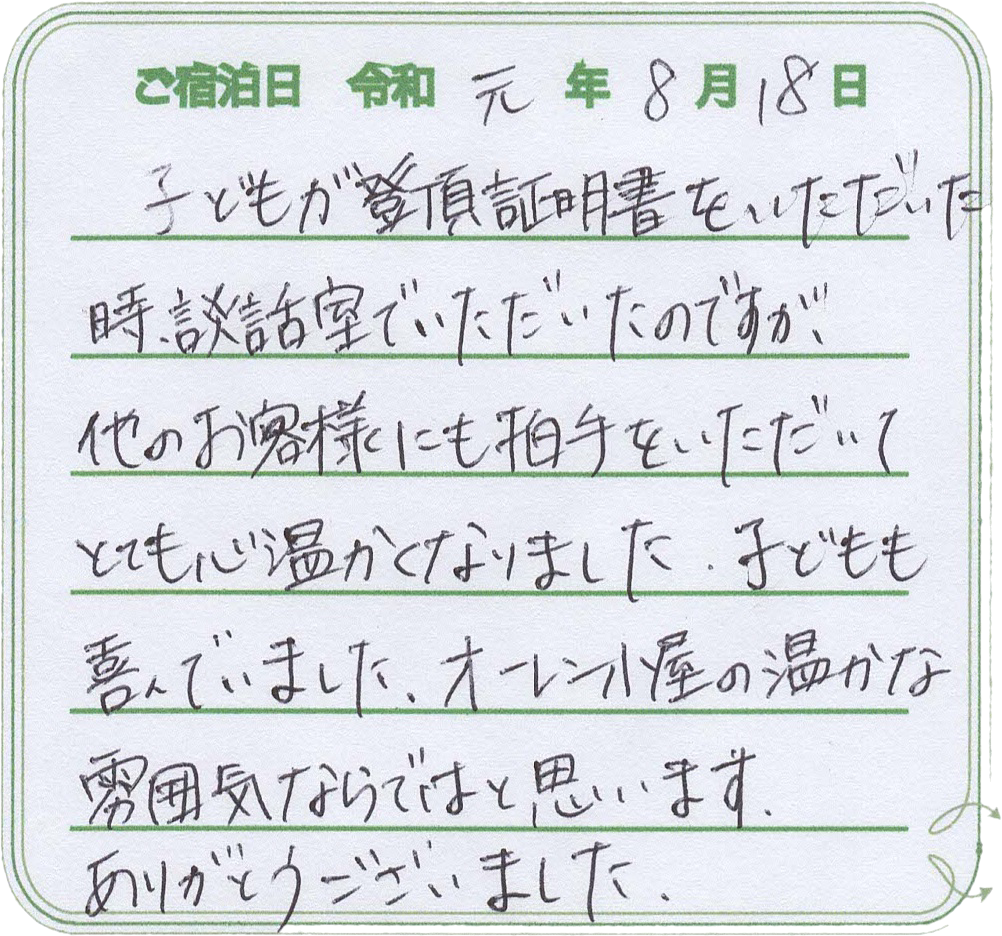 ご宿泊日 令和 元 年 8 月 18 日
子どもが登頂証明書をいただいた
時、談話室でいただいたのですが、
他のお客様にも拍手をいただいて
とても心温かくなりました。子どもも
喜んでいました。オーレン小屋の温かな
雰囲気ならではと思います。
ありがとうございました。